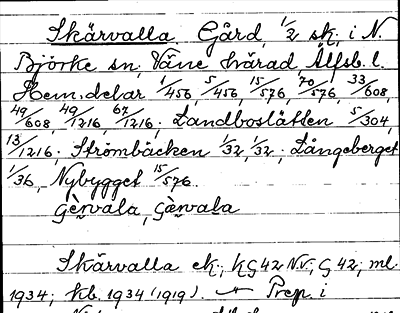 Skärvalla Gård, 1/2 sk, i N.
Björke sn, Väne härad Älfsb. l.
Hem.delar 1/456, 5/456, 15/576, 70/576, 33/608,
49/608, 49/1216, 67/1216. Landboslätten 5/304,
13/1216. Strömbäcken 1/32, 1/32. Långeberget
1/36, Nybygget 15/576.
Skärvalla ek; kG42 NV; G 42; ml
1934; kb. 1934 (1919). Prep. i